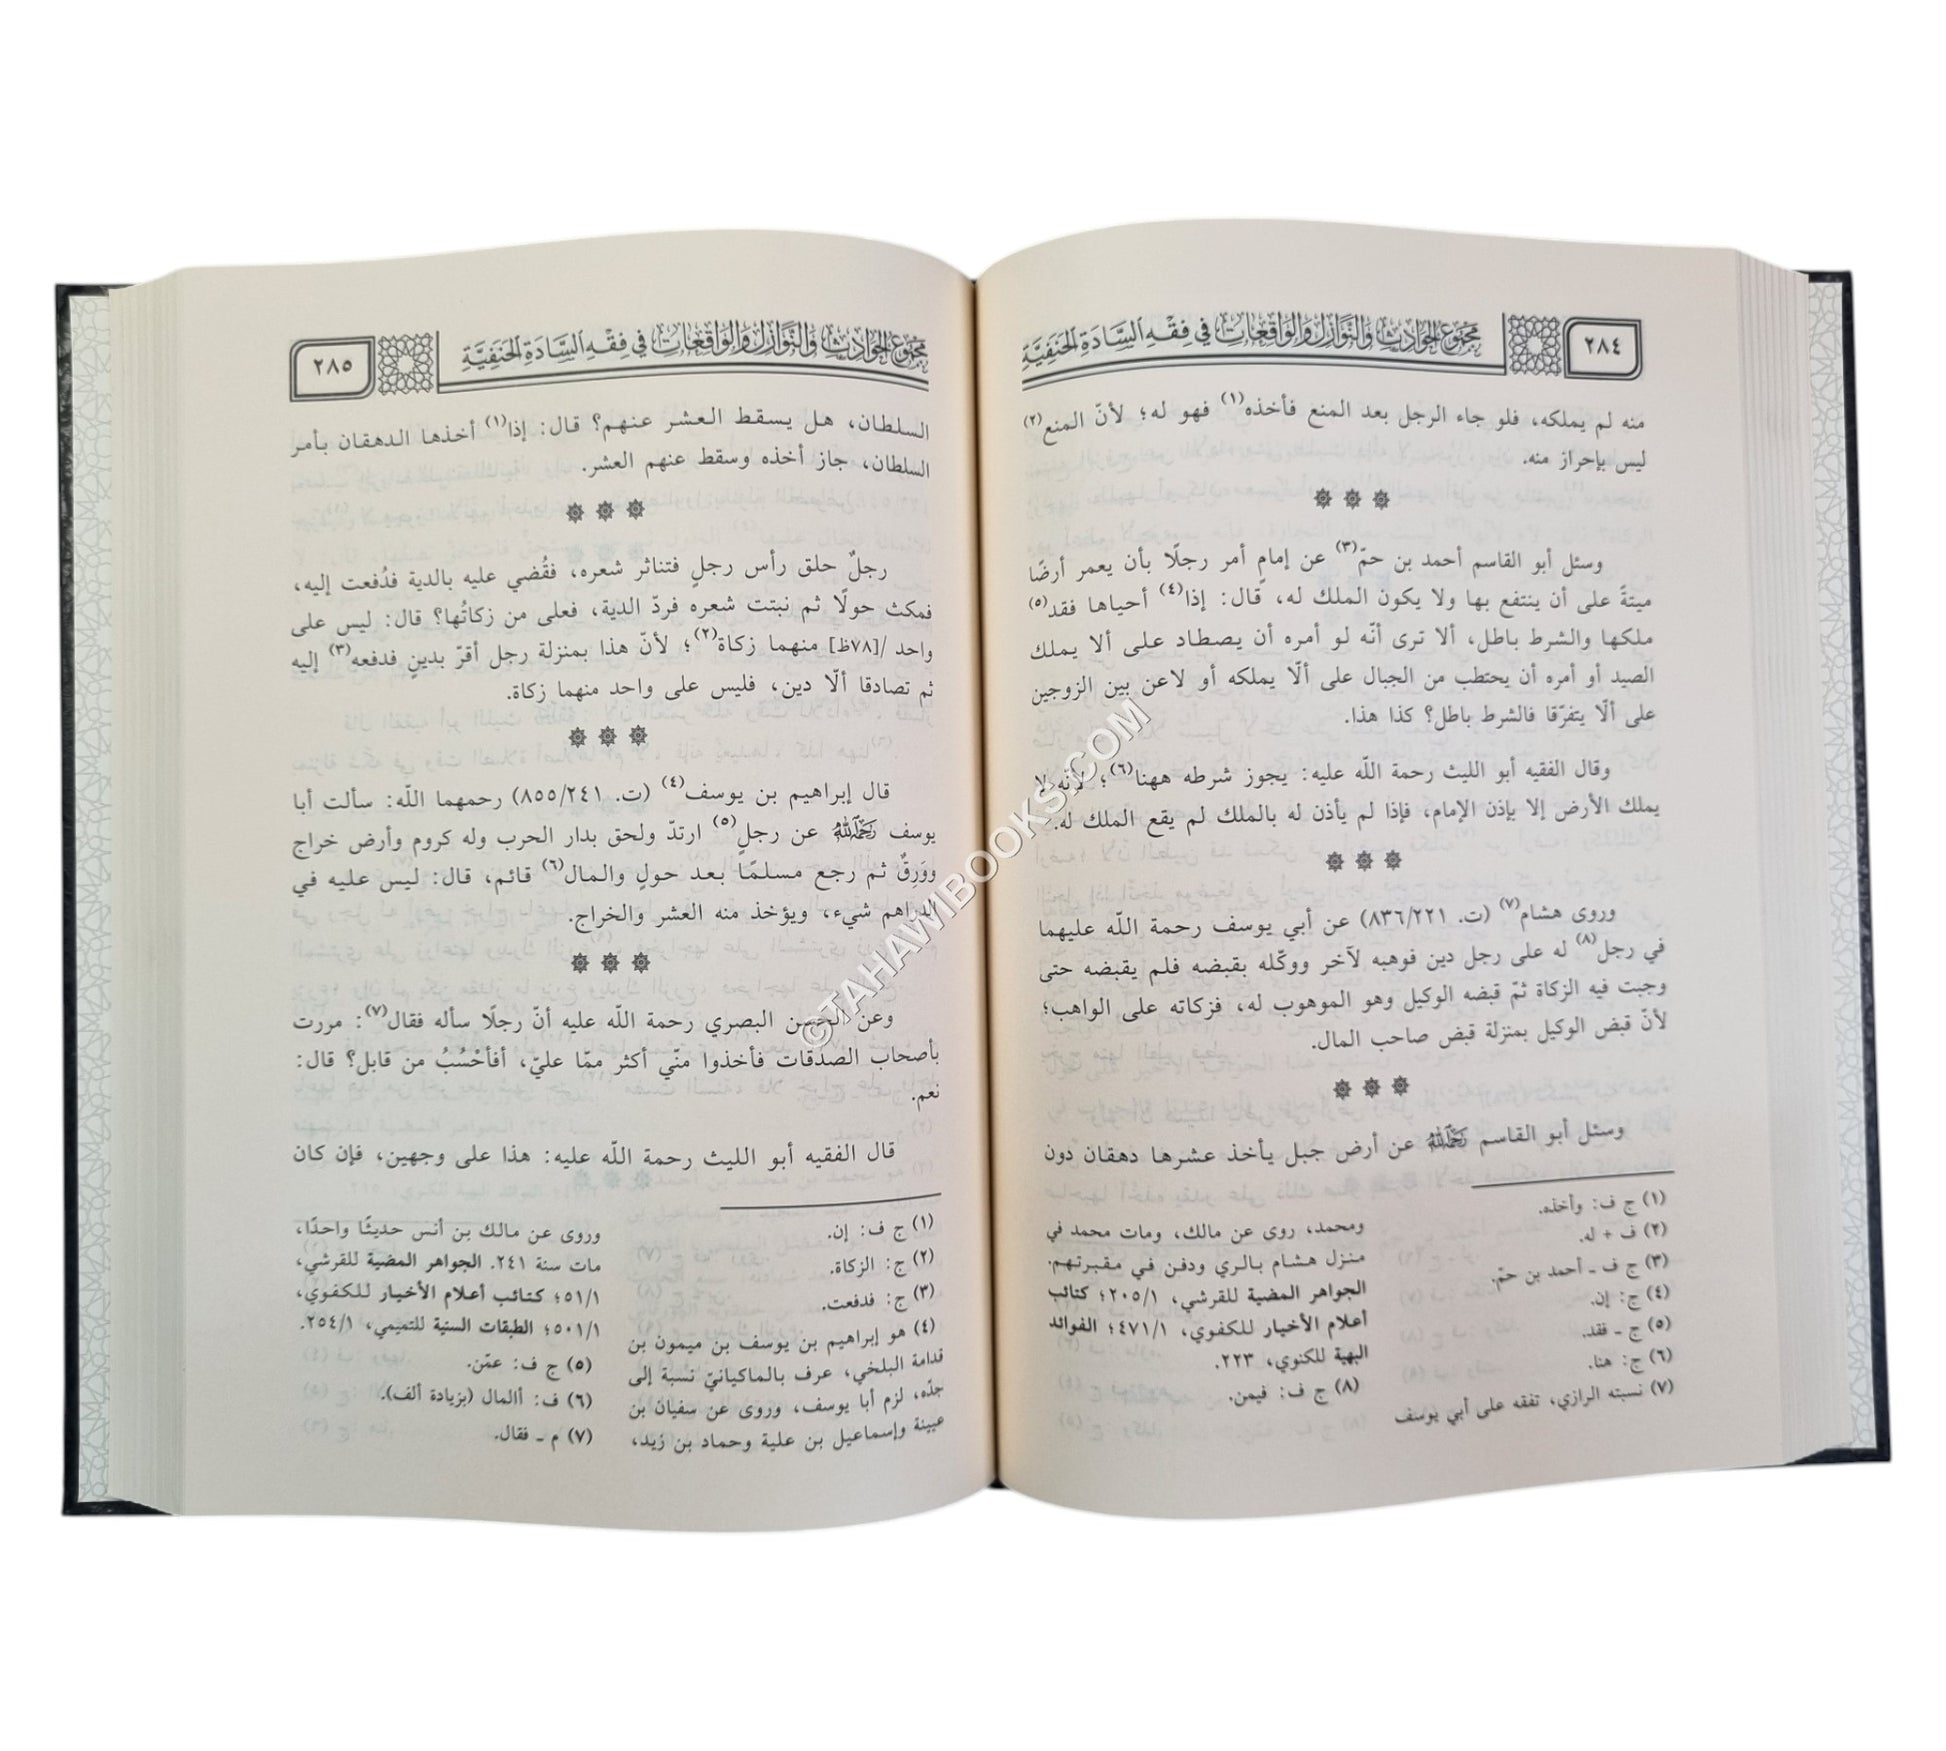 ٢٨٤
مجموع الحوادث والنوازل والواقعات في فقه السادة الحنفية
منه لم يملكه، فلو جاء الرجل بعد المنع فأخذه(١) فهو له؛ لأنّ المنع(٢)
ليس بإحراز منه.
وسئل أبو القاسم أحمد بن حمّ(٣) عن إمامٍ أمر رجلًا بأن يعمر أرضًا
ميتةً على أن ينتفع بها ولا يكون الملك له، قال: إذا(٤) أحياها فقد(٥)
ملكها والشرط باطل، ألا ترى أنّه لو أمره أن يصطاد على ألا يملك
الصيد أو أمره أن يحتطب من الجبال على ألّا يملكه أو لاعن بين الزوجين
على ألّا يتفرّقا فالشرط باطل؟ كذا هذا.
وقال الفقيه أبو الليث رحمة اللّه عليه: يجوز شرطه ههنا(٦)؛ لأنّه لا
يملك الأرض إلا بإذن الإمام، فإذا لم يأذن له بالملك لم يقع الملك له.
وروى هشام(٧) (ت. ٨٣٦/٢٢١) عن أبي يوسف رحمة اللّه عليهما
في رجل(٨) له على رجل دين فوهبه لآخر ووكّله بقبضه فلم يقبضه حتى
وجبت فيه الزكاة ثمّ قبضه الوكيل وهو الموهوب له، فزكاته على الواهب؛
لأنّ قبض الوكيل بمنزلة قبض صاحب المال.
وسئل أبو القاسم رَحِمَهُ اللَّهُ عن أرض جبل يأخذ عشرها دهقان دون
(١) ج ف: وأخذه.
(٢) ف + له.
(٣) ج ف ـ أحمد بن حمّ.
(٤) ج: إن.
(٥) ج ـ فقد.
(٦) ج: هنا.
(٧) نسبته الرازي، تفقه على أبي يوسف
ومحمد، روى عن مالك، ومات محمد في
منزل هشام بالري ودفن في مقبرتهم.
الجواهر المضية للقرشي، ٢٠٥/١؛ كتائب
أعلام الأخيار للكفوي، ٤٧١/١؛ الفوائد
البهية للكنوي، ٢٢٣.
(٨) ج ف: فيمن.
مجموع الحوادث والنوازل والواقعات في فقه السادة الحنفية
٢٨٥
السلطان، هل يسقط العشر عنهم؟ قال: إذا(١) أخذها الدهقان بأمر
السلطان، جاز أخذه وسقط عنهم العشر.
رجلٌ حلق رأس رجلٍ فتناثر شعره، فقُضي عليه بالدية فدُفعت إليه،
فمكث حولًا ثم نبتت شعره فردّ الدية، فعلى من زكاتُها؟ قال: ليس على
واحد /[٧٨ظ] منهما زكاة(٢)؛ لأنّ هذا بمنزلة رجل أقرّ بدينٍ فدفعه(٣) إليه
ثم تصادقا ألّا دين، فليس على واحد منهما زكاة.
قال إبراهيم بن يوسف(٤) (ت. ٨٥٥/٢٤١) رحمهما اللّه: سألت أبا
يوسف رَحِمَهُ اللَّهُ عن رجلٍ(٥) ارتدّ ولحق بدار الحرب وله كروم وأرض خراج
ووَرِقٌ ثم رجع مسلمًا بعد حولٍ والمال(٦) قائم، قال: ليس عليه في
الدراهم شيء، ويؤخذ منه العشر والخراج.
وعن الحسن البصري رحمة اللّه عليه أنّ رجلًا سأله فقال(٧): مررت
بأصحاب الصدقات فأخذوا منّي أكثر ممّا عليّ، أفأحْسُبُ من قابل؟ قال:
نعم.
قال الفقيه أبو الليث رحمة اللّه عليه: هذا على وجهين، فإن كان
(١) ج ف: إن.
(٢) ج: الزكاة.
(٣) ج: فدفعت.
(٤) هو إبراهيم بن يوسف بن ميمون بن
قدامة البلخي، عرف بالماكيانيّ نسبة إلى
جدّه، لزم أبا يوسف، وروى عن سفيان بن
عيينة وإسماعيل بن علية وحماد بن زيد،
وروى عن مالك بن أنس حديثًا واحدًا،
مات سنة ٢٤١. الجواهر المضية للقرشي،
٥١/١؛ كتائب أعلام الأخيار للكفوي،
٥٠١/١؛ الطبقات السنية للتميمي، ٢٥٤/١.
(٥) ج ف: عمّن.
(٦) ف: أالمال (بزيادة ألف).
(٧) م ـ فقال.
©TAHAWIBOOKS.COM